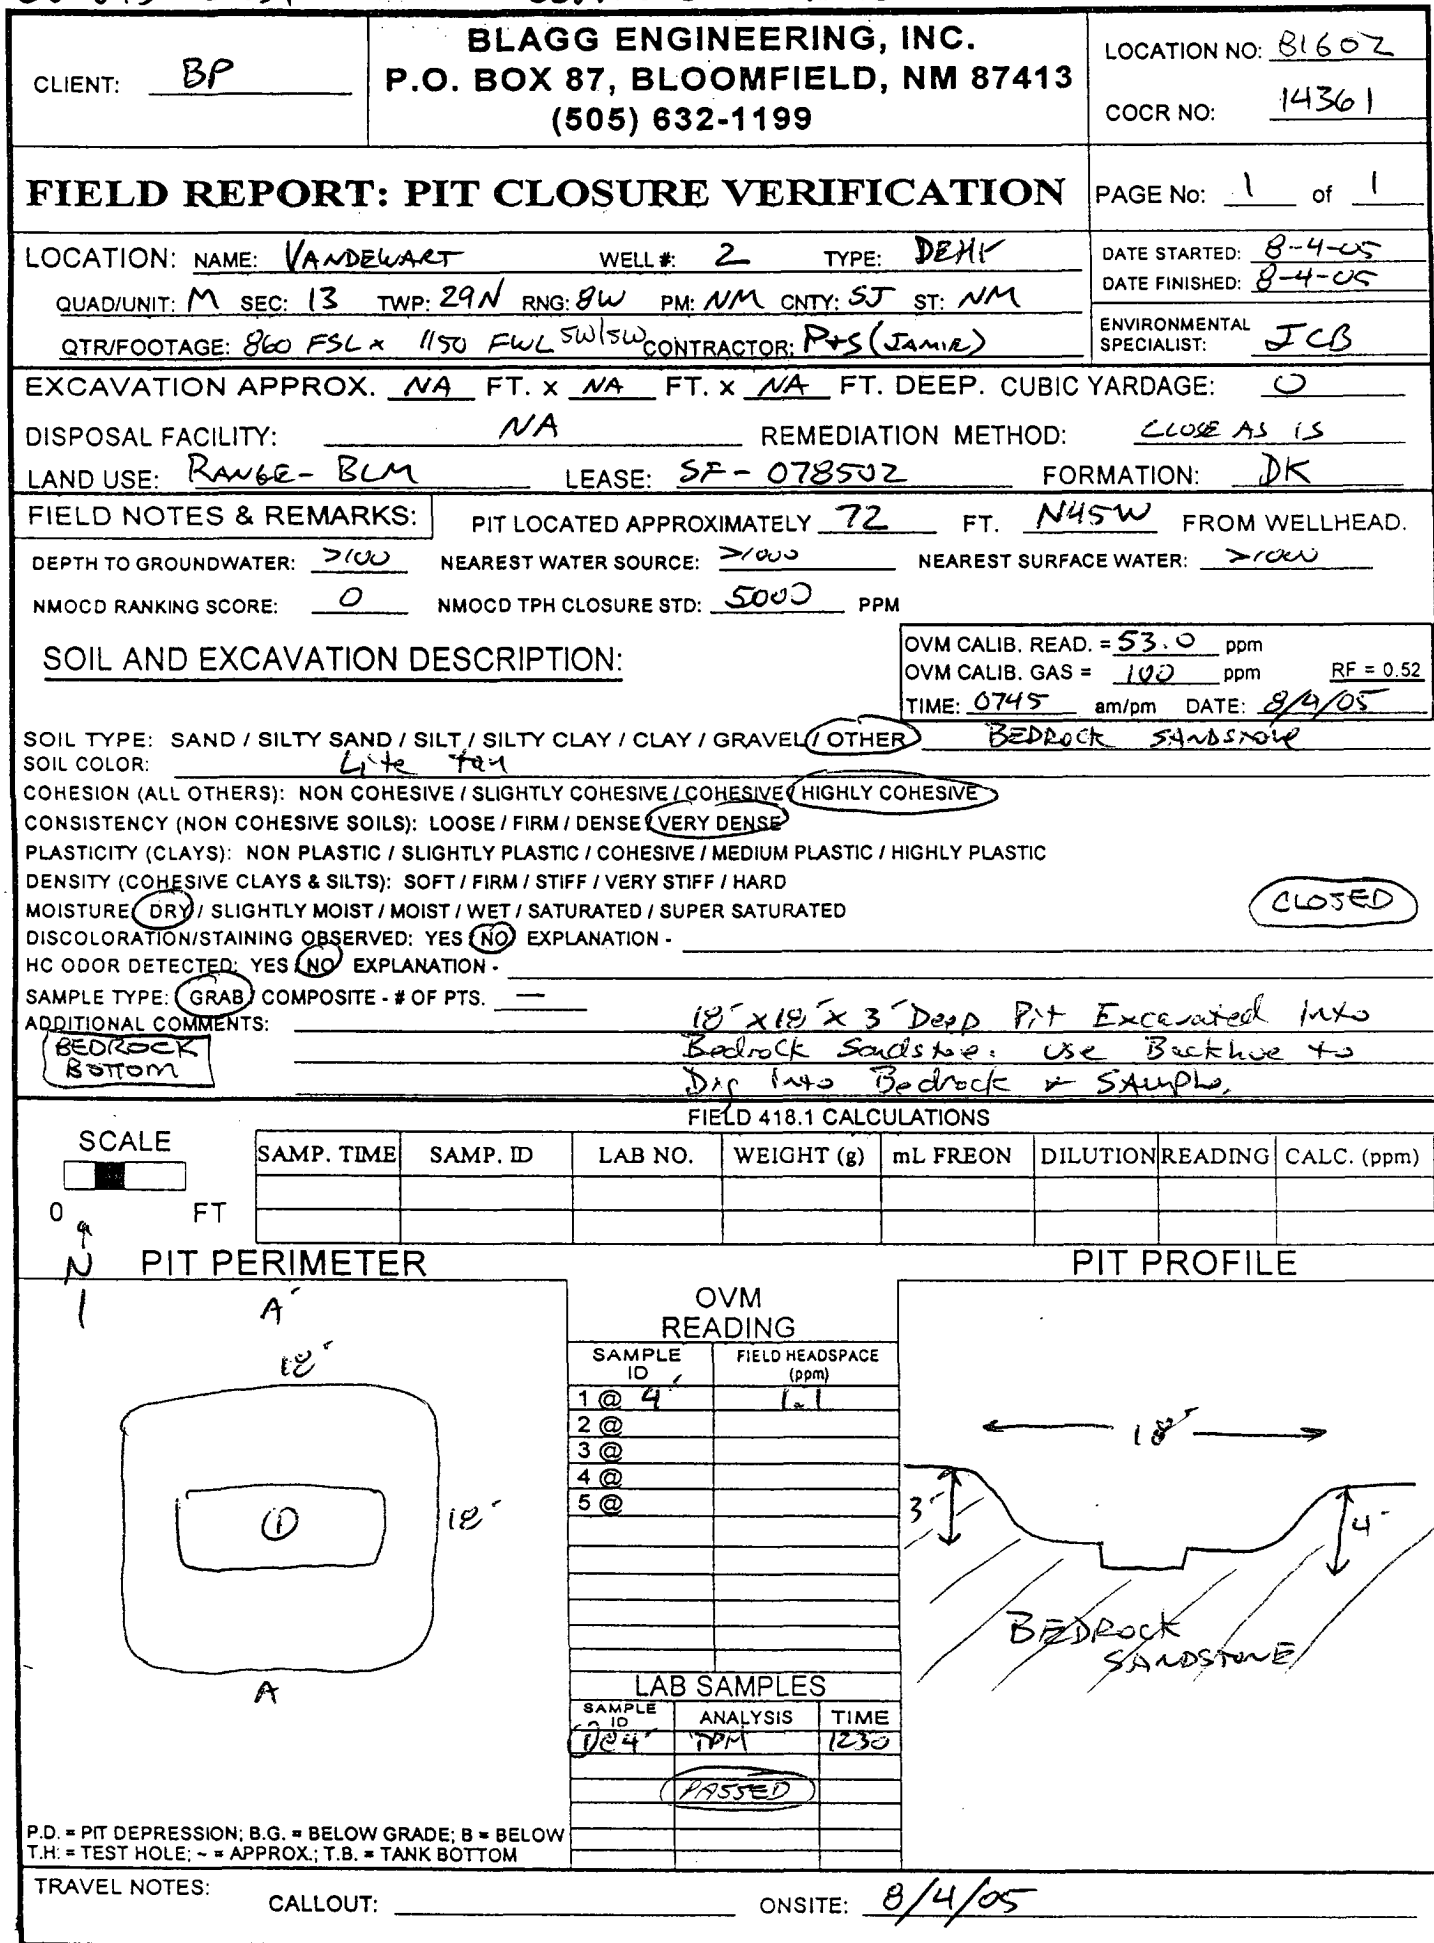 BLAGG ENGINEERING, INC.
P.O. BOX 87, BLOOMFIELD, NM 87413
(505) 632-1199
CLIENT: BP
LOCATION NO: B1602
COCR NO: 14361
FIELD REPORT: PIT CLOSURE VERIFICATION
PAGE No: 1 of 1
LOCATION: NAME: VANDEWART WELL #: 2 TYPE: DEHY
QUAD/UNIT: M SEC: 13 TWP: 29N RNG: 8W PM: NM CNTY: SJ ST: NM
QTR/FOOTAGE: 860 FSL x 1150 FWL SW/SW CONTRACTOR: P+S (JAMIE)
DATE STARTED: 8-4-05
DATE FINISHED: 8-4-05
ENVIRONMENTAL SPECIALIST: JCB
EXCAVATION APPROX. NA FT. x NA FT. x NA FT. DEEP. CUBIC YARDAGE: 0
DISPOSAL FACILITY: NA REMEDIATION METHOD: CLOSE AS IS
LAND USE: RANGE - BLM LEASE: SF - 078502 FORMATION: DK
FIELD NOTES & REMARKS: PIT LOCATED APPROXIMATELY 72 FT. N45W FROM WELLHEAD.
DEPTH TO GROUNDWATER: >100 NEAREST WATER SOURCE: >1000 NEAREST SURFACE WATER: >1000
NMOCD RANKING SCORE: 0 NMOCD TPH CLOSURE STD: 5000 PPM
SOIL AND EXCAVATION DESCRIPTION:
OVM CALIB. READ. = 53.0 ppm
OVM CALIB. GAS = 100 ppm RF = 0.52
TIME: 0745 am/pm DATE: 8/4/05
SOIL TYPE: SAND / SILTY SAND / SILT / SILTY CLAY / CLAY / GRAVEL / OTHER BEDROCK SANDSTONE
SOIL COLOR: Lite tan
COHESION (ALL OTHERS): NON COHESIVE / SLIGHTLY COHESIVE / COHESIVE / HIGHLY COHESIVE
CONSISTENCY (NON COHESIVE SOILS): LOOSE / FIRM / DENSE / VERY DENSE
PLASTICITY (CLAYS): NON PLASTIC / SLIGHTLY PLASTIC / COHESIVE / MEDIUM PLASTIC / HIGHLY PLASTIC
DENSITY (COHESIVE CLAYS & SILTS): SOFT / FIRM / STIFF / VERY STIFF / HARD
MOISTURE: DRY / SLIGHTLY MOIST / MOIST / WET / SATURATED / SUPER SATURATED
CLOSED
DISCOLORATION/STAINING OBSERVED: YES / NO EXPLANATION -
HC ODOR DETECTED: YES / NO EXPLANATION -
SAMPLE TYPE: GRAB / COMPOSITE - # OF PTS. —
ADDITIONAL COMMENTS: 18' x 18' x 3' Deep Pit Excavated Into
BEDROCK BOTTOM
Bedrock Sandstone. Use Backhoe to
Dig Into Bedrock & SAmple.
FIELD 418.1 CALCULATIONS
SCALE
0 FT
SAMP. TIME SAMP. ID LAB NO. WEIGHT (g) mL FREON DILUTION READING CALC. (ppm)
N
PIT PERIMETER
PIT PROFILE
A'
18'
18'
1
A
OVM READING
SAMPLE ID FIELD HEADSPACE (ppm)
1 @ 4' 1.1
2 @
3 @
4 @
5 @
18'
3'
4'
BEDROCK SANDSTONE
LAB SAMPLES
SAMPLE ID ANALYSIS TIME
1@4' TPH 1230
PASSED
P.D. = PIT DEPRESSION; B.G. = BELOW GRADE; B = BELOW
T.H. = TEST HOLE; ~ = APPROX.; T.B. = TANK BOTTOM
TRAVEL NOTES: CALLOUT: ONSITE: 8/4/05